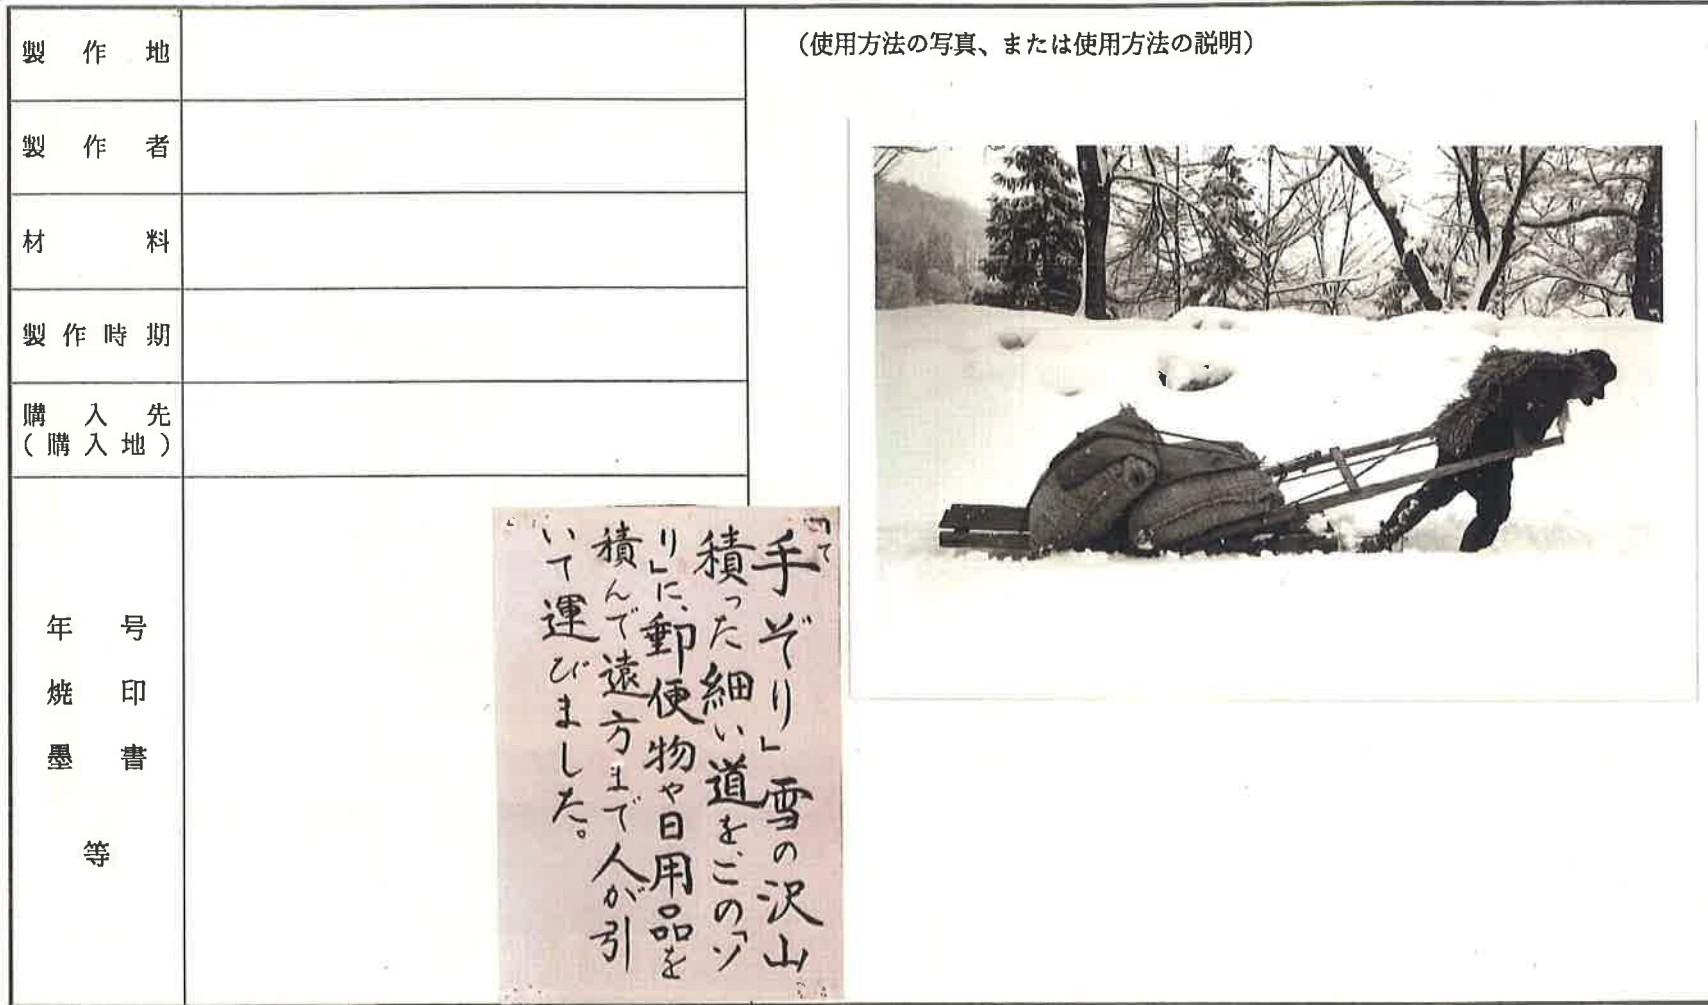 製作地
製作者
材料
製作時期
購入先
(購入地)
年号
焼印
墨書
等
(使用方法の写真、または使用方法の説明)
「手ぞり」雪の沢山
て
積った細い道を、この「ソ
リ」に、郵便物や日用品を
積んで遠方まで人が引
いて運びました。